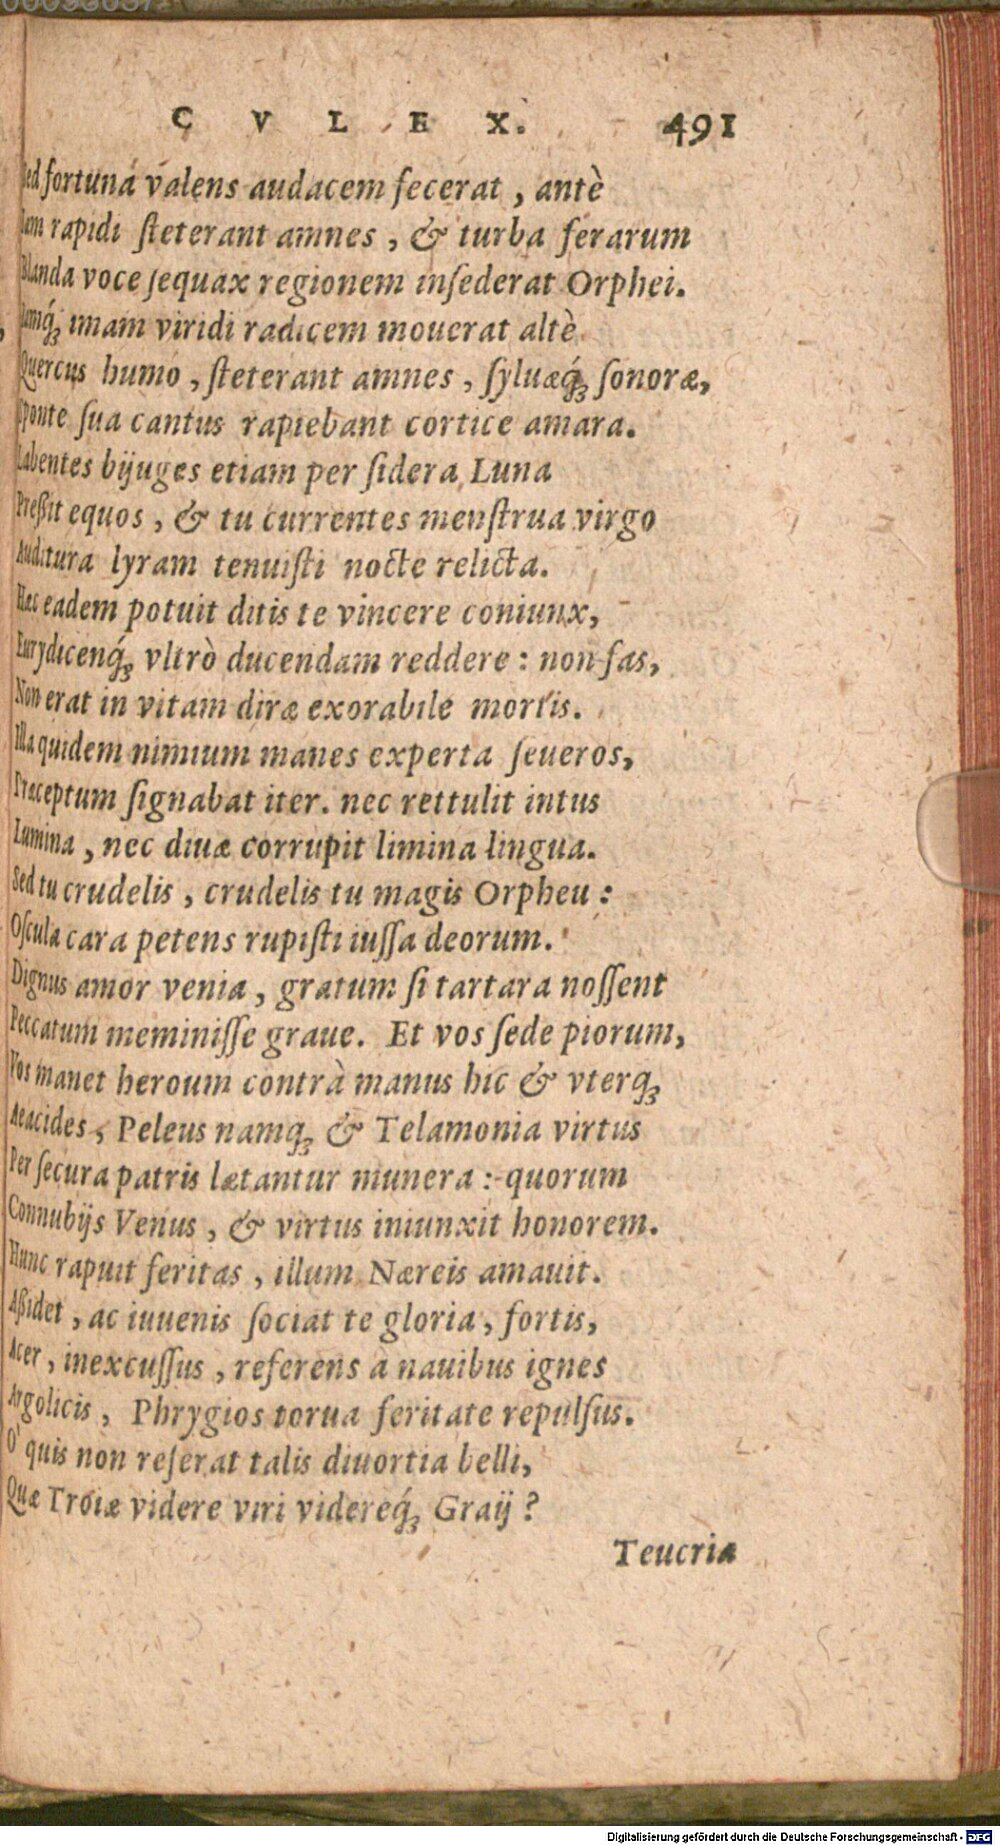 C V L E X. 491
Sed fortuna valens audacem fecerat, antè
Iam rapidi steterant amnes, & turba ferarum
Blanda voce sequax regionem insederat Orphei.
Iamq́ꝫ imam viridi radicem mouerat altè
Quercus humo, steterant amnes, syluæq́ꝫ sonoræ,
Sponte sua cantus rapiebant cortice amara.
Labentes bijuges etiam per sidera Luna
Preßit equos, & tu currentes menstrua virgo
Auditura lyram tenuisti nocte relicta.
Hæc eadem potuit ditis te vincere coniunx,
Eurydicenq́ꝫ vltrò ducendam reddere: non fas,
Non erat in vitam diræ exorabile mortis.
Illa quidem nimium manes experta seueros,
Præceptum signabat iter. nec rettulit intus
Lumina, nec diuæ corrupit limina lingua.
Sed tu crudelis, crudelis tu magis Orpheu:
Oscula cara petens rupisti iussa deorum.
Dignus amor venia, gratum si tartara nossent
Peccatum meminisse graue. Et vos sede piorum,
Vos manet heroum contrà manus hic & vterqꝫ
Aeacides, Peleus namqꝫ & Telamonia virtus
Per secura patris lætantur munera: quorum
Connubijs Venus, & virtus iniunxit honorem.
Hunc rapuit feritas, illum Næreis amauit.
Aßidet, ac iuuenis sociat te gloria, fortis,
Acer, inexcussus, referens a nauibus ignes
Argolicis, Phrygios torua feritate repulsus.
O' quis non referat talis diuortia belli,
Quæ Troiæ videre viri videreq́ꝫ Graij?
Teucria
Digitalisierung gefördert durch die Deutsche Forschungsgemeinschaft - DFG